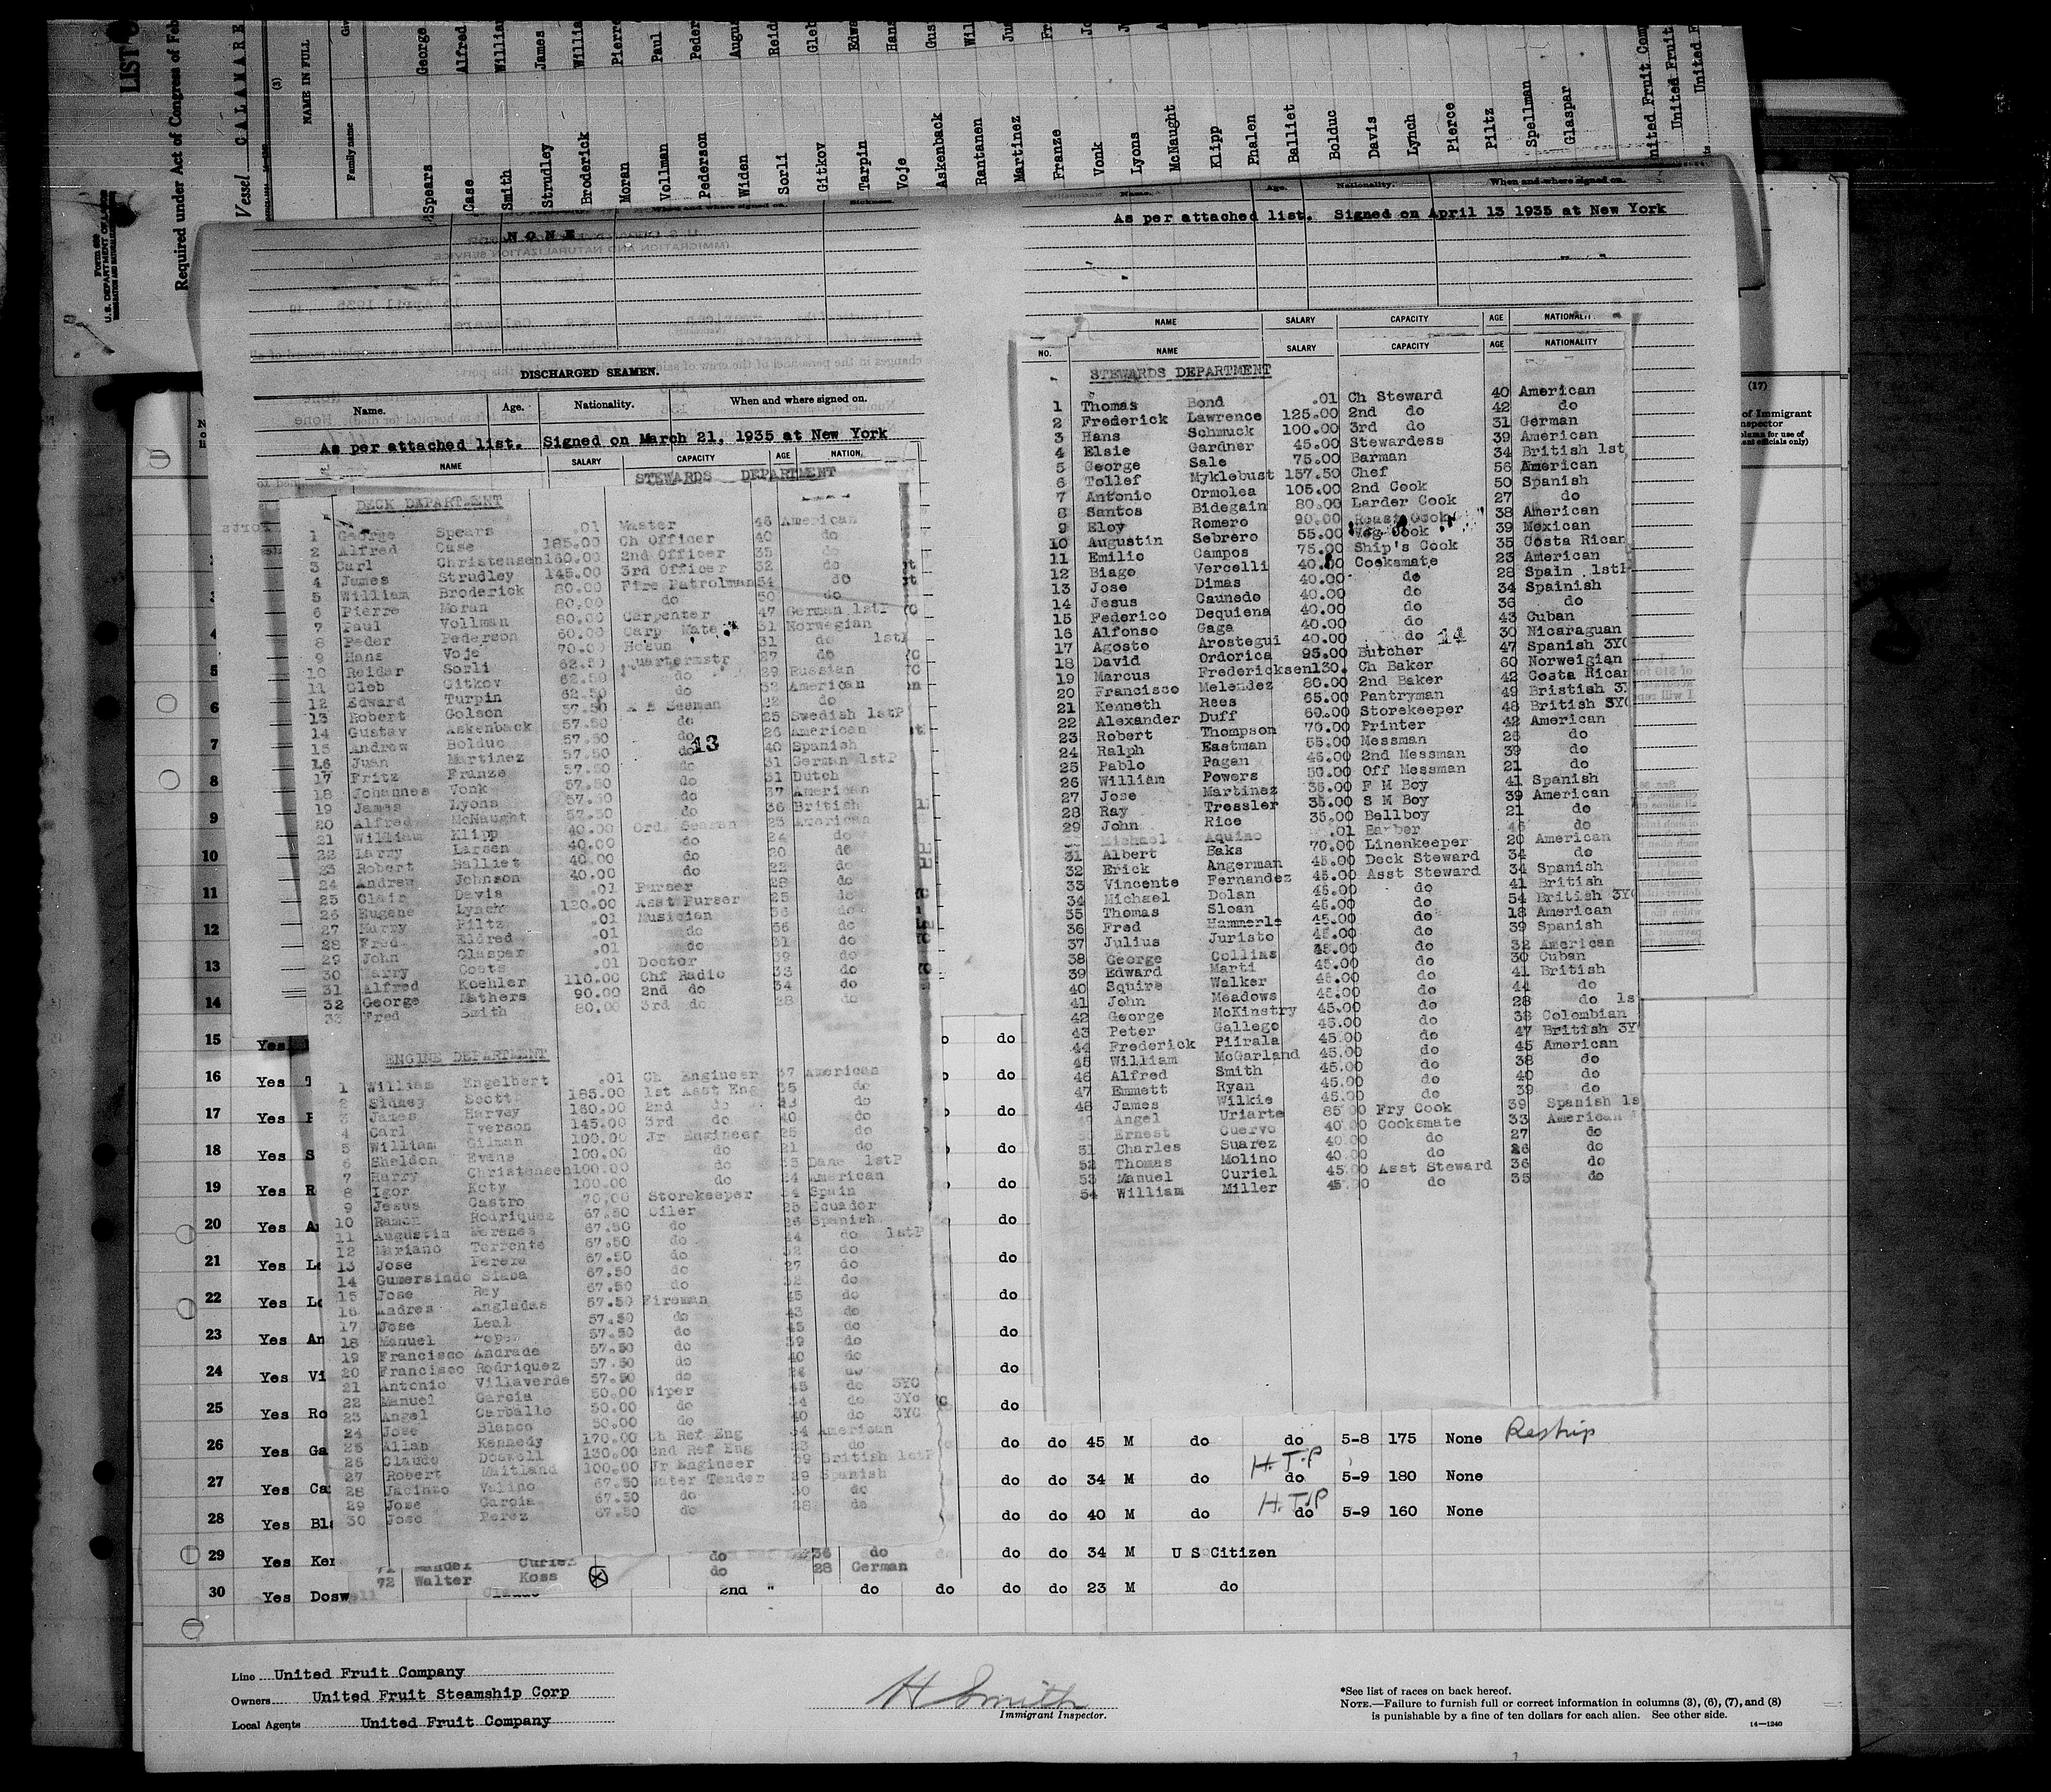 LIST
Form 680
U. S. DEPARTMENT OF LABOR
Required under Act of Congress of Feb
Vessel CALAMARE
(3)
NAME IN FULL
Family name
Spears George
Case Alfred
Smith Willia
Strudley James
Broderick Willia
Moran Pierre
Vollman Paul
Pederson Peder
Widen Augus
Sorli Reid
Gitkov Gleb
Tarpin Edw
Voje Han
Askenback Gus
Rantanen Wil
Martinez Jua
Franze Fr
Vonk Jo
Lyons J
McNaught A
Klipp W
Phalen
Balliet
Bolduc
Davis
Lynch
Pierce
Piltz
Spellman
Glaspar
United Fruit Com
United Fruit
United F
NONE
DISCHARGED SEAMEN.
Name. Age. Nationality. When and where signed on.
As per attached list. Signed on March 21, 1935 at New York
NAME SALARY CAPACITY AGE NATION
STEWARDS DEPARTMENT
DECK DEPARTMENT
1 George Spears .01 Master 46 American
2 Alfred Case 185.00 Ch Officer 40 do
3 Carl Christensen 160.00 2nd Officer 35 do
4 James Strudley 145.00 3rd Officer 32 do
5 William Broderick 80.00 Fire Patrolman 54 do
6 Pierre Moran 80.00 do 50 do
7 Paul Vollman 80.00 Carpenter 47 German 1stP
8 Peder Pederson 60.00 Carp Mate 31 Norwegian
9 Hans Voje 70.00 Bosun 31 do 1stP
10 Reidar Sorli 62.50 Quartermstr 27 do
11 Gleb Gitkov 62.50 do 29 Russian
12 Edward Turpin 62.50 do 32 American
13 Robert Golson 57.50 A B Seaman 22 do
14 Gustav Askenback 57.50 do 25 Swedish 1stP
15 Andrew Bolduc 57.50 do 26 American
16 Juan Martinez 57.50 do 13 40 Spanish
17 Fritz Franze 57.50 do 31 German 1stP
18 Johannes Vonk 57.50 do 31 Dutch
19 James Lyons 57.50 do 37 American
20 Alfred McNaught 57.50 do 36 British
21 William Klipp 40.00 Ord Seaman 23 American
22 Larry Larsen 40.00 do 24 do
23 Robert Balliet 40.00 do 20 do
24 Andrew Johnson 40.00 do 22 do
25 Clair Davis .01 Purser 28 do
26 Eugene Lynch 120.00 Asst Purser 25 do
27 Murry Piltz .01 Musician 36 do
28 Fred Eldred .01 do 36 do
29 John Glasper .01 do 31 do
30 Harry Coats .01 Doctor 39 do
31 Alfred Koehler 110.00 Chf Radio 33 do
32 George Mathers 90.00 2nd do 34 do
33 Fred Smith 80.00 3rd do 28 do
ENGINE DEPARTMENT
1 William Engelbert .01 Ch Engineer 37 American
2 Sidney Scott 185.00 1st Asst Eng 35 do
3 James Harvey 160.00 2nd do do
4 Carl Iverson 145.00 3rd do 40 do
5 William Gilman 100.00 Jr Engineer 25 do
6 Sheldon Evans 100.00 do 21 do
7 Harry Christensen 100.00 do 33 Dane 1stP
8 Igor Koty 100.00 do 24 American
9 Jesus Castro 70.00 Storekeeper 34 Spain
10 Ramon Rodriquez 67.50 Oiler 25 Ecuador
11 Augustin Morenes 67.50 do 26 Spanish
12 Mariano Torrente 67.50 do 44 do 1stP
13 Jose Pereia 67.50 do 32 do
14 Gumersindo Siaba 67.50 do 27 do
15 Jose Rey 67.50 do 32 do
16 Andres Angladas 57.50 Fireman 45 do
17 Jose Leal 57.50 do 43 do
18 Manuel Lopez 57.50 do 45 do
19 Francisco Andrade 57.50 do 39 do
20 Francisco Rodriquez 57.50 do 40 do
21 Antonio Villaverde 57.50 do do
22 Manuel Garcia 50.00 Wiper 45 do 3YC
23 Angel Carballo 50.00 do 34 do 3YC
24 Jose Blanco 50.00 do 40 do 3YC
25 Allan Kennedy 170.00 Ch Ref Eng 34 American
26 Claude Doswell 130.00 2nd Ref Eng 23 do
27 Robert Maitland 100.00 Jr Engineer 39 British 1stP
28 Jacinto Valino 67.50 Water Tender 29 Spanish
29 Jose Garcia 67.50 do 30 do
30 Jose Perez 67.50 do 28 do
71 Manuel Curiel do 36 do
72 Walter Koss do 28 German
Name. Age. Nationality. When and where signed on.
As per attached list. Signed on April 13 1935 at New York
NAME SALARY CAPACITY AGE NATIONALI
NO. NAME SALARY CAPACITY AGE NATIONALITY
STEWARDS DEPARTMENT
1 Thomas Bond .01 Ch Steward 40 American
2 Frederick Lawrence 125.00 2nd do 42 do
3 Hans Schmuck 100.00 3rd do 31 German
4 Elsie Gardner 45.00 Stewardess 39 American
5 George Sale 75.00 Barman 34 British 1st
6 Tollef Myklebust 157.50 Chef 56 American
7 Antonio Ormolea 105.00 2nd Cook 50 Spanish
8 Santos Bidegain 80.00 Larder Cook 27 do
9 Eloy Romero 90.00 Roast Cook 38 American
10 Augustin Sebrero 55.00 Veg Cook 39 Mexican
11 Emilio Campos 75.00 Ship's Cook 35 Costa Rican
12 Biago Vercelli 40.00 Cooksmate 23 American
13 Jose Dimas 40.00 do 28 Spain 1stP
14 Jesus Caunedo 40.00 do 34 Spainish
15 Federico Dequiena 40.00 do 36 do
16 Alfonso Gaga 40.00 do 43 Cuban
17 Agosto Arostegui 40.00 do 14 30 Nicaraguan
18 David Ordorica 95.00 Butcher 47 Spanish 3YC
19 Marcus Fredericksen 130. Ch Baker 60 Norweigian
20 Francisco Melendez 80.00 2nd Baker 42 Costa Rican
21 Kenneth Rees 65.00 Pantryman 49 Bristish 3Y
22 Alexander Duff 60.00 Storekeeper 48 British 3YC
23 Robert Thompson 70.00 Printer 42 American
24 Ralph Eastman 55.00 Messman 26 do
25 Pablo Pagan 45.00 2nd Messman 39 do
26 William Powers 50.00 Off Messman 21 do
27 Jose Martinez 35.00 F M Boy 41 Spanish
28 Ray Tressler 35.00 S M Boy 39 American
29 John Rice 35.00 Bellboy 21 do
Michael Aquino .01 Barber 46 do
31 Albert Baks 70.00 Linenkeeper 20 American
32 Erick Angerman 45.00 Deck Steward 34 do
33 Vincente Fernandez 45.00 Asst Steward 34 Spanish
34 Michael Dolan 45.00 do 41 British
35 Thomas Sloan 45.00 do 54 British 3YC
36 Fred Hammerle 45.00 do 18 American
37 Julius Juristo 45.00 do 39 Spanish
38 George Collins 45.00 do 32 American
39 Edward Marti 45.00 do 30 Cuban
40 Squire Walker 45.00 do 41 British
41 John Meadows 45.00 do 44 do
42 George McKinstry 45.00 do 28 do 1s
43 Peter Gallego 45.00 do 38 Colombian
44 Frederick Piirala 45.00 do 47 British 3Y
45 William McGarland 45.00 do 45 American
46 Alfred Smith 45.00 do 38 do
47 Emmett Ryan 45.00 do 40 do
48 James Wilkie 45.00 do 39 do
Angel Uriarte 85.00 Fry Cook 39 Spanish 1s
Ernest Cuervo 40.00 Cooksmate 33 American
51 Charles Suarez 40.00 do 27 do
52 Thomas Molino 40.00 do 26 do
53 Manuel Curiel 45.00 Asst Steward 36 do
54 William Miller 45.00 do 35 do
(17)
of Immigrant
nspector
3
4
5
6
7
8
9
10
11
12
13
14
15 Yes do
16 Yes
17 Yes do
18 Yes S do
19 Yes R do
20 Yes A do
21 Yes Le do
22 Yes Lo do
23 Yes An do
24 Yes Vi do
25 Yes Ro do
26 Yes Ga do do 45 M do do 5-8 175 None Reship
27 Yes Ca do do 34 M do H.T.P do 5-9 180 None
28 Yes Bla do do 40 M do H.T.P do 5-9 160 None
29 Yes Ken do do 34 M U S Citizen
30 Yes Doswell Claude 2nd " do do do do 23 M do
Line United Fruit Company
Owners United Fruit Steamship Corp
Local Agents United Fruit Company
H Smith
Immigrant Inspector.
*See list of races on back hereof.
NOTE.—Failure to furnish full or correct information in columns (3), (6), (7), and (8)
is punishable by a fine of ten dollars for each alien. See other side.
14—1240